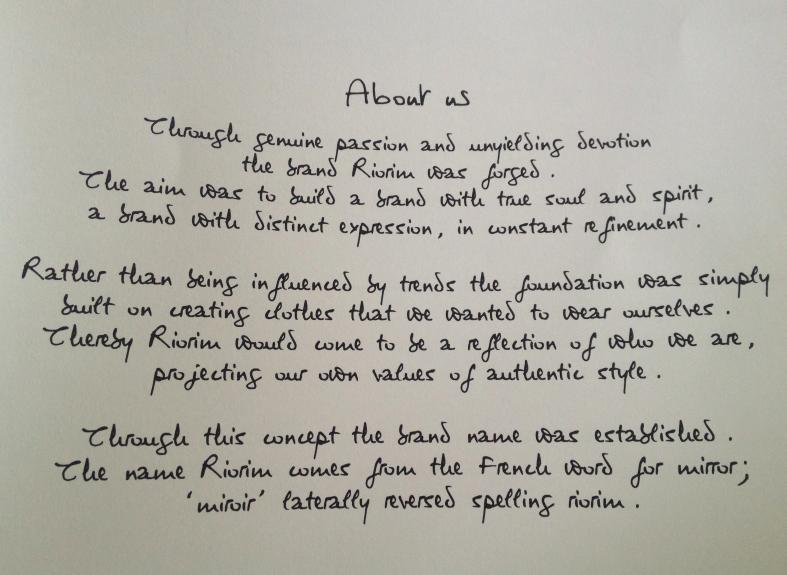 About us
Through genuine passion and unyielding devotion
the brand Riorim was forged.
The aim was to build a brand with true soul and spirit,
a brand with distinct expression, in constant refinement.
Rather than being influenced by trends the foundation was simply
built on creating clothes that we wanted to wear ourselves.
Thereby Riorim would come to be a reflection of who we are,
projecting our own values of authentic style.
Through this concept the brand name was established.
The name Riorim comes from the French word for mirror;
'miroir' laterally reversed spelling riorim.